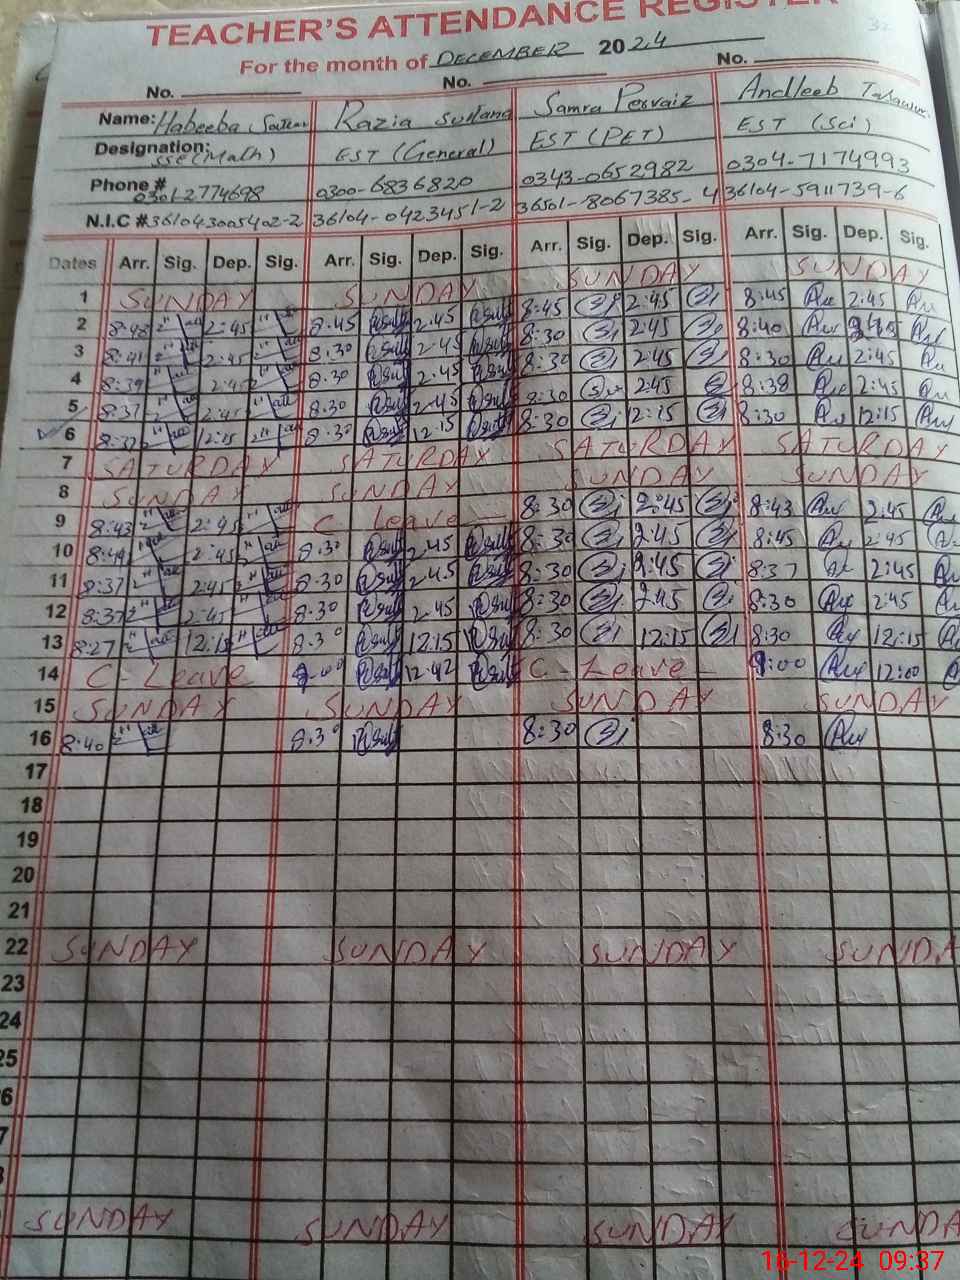 TEACHER'S ATTENDANCE REGISTER
For the month of DECEMBER 2024
No. No. No.
Name: Habeeba Razia Sultana Samra Pervaiz Andleeb
Designation: SSE (Math) EST (General) EST (PET) EST (Sci)
Phone # 0301-2774698 0300-6836820 0343-0652982 0304-7174993
N.I.C # 36104-3005402-2 36104-0423451-2 36501-8067385-4 36104-5911739-6
Dates Arr. Sig. Dep. Sig. Arr. Sig. Dep. Sig. Arr. Sig. Dep. Sig. Arr. Sig. Dep. Sig.
1 SUNDAY SUNDAY SUNDAY SUNDAY
2 8:48 2:45 8.45 2.45 8:45 2:45 8:45 2:45
3 8:41 2:45 8.30 2.45 8:30 2:45 8:40
4 8:39 2:45 8.30 2.45 8:30 2:45 8:30 2:45
5 8:37 2:45 8:30 2.45 8:30 2:45 8:38 2:45
6 8:37 12:15 8.30 12.15 8:30 12:15 8:30 12:15
7 SATURDAY SATURDAY SATURDAY SATURDAY
8 SUNDAY SUNDAY SUNDAY SUNDAY
9 8:43 2:45 C Leave 8:30 2:45 8:43 2:45
10 2:45 8.30 2.45 8:30 2:45 8:45 2:45
11 8:37 2:45 8.30 2.45 8:30 2:45 8:37 2:45
12 8:37 2:45 8:30 2.45 8:30 2:45 8:30 2:45
13 8:27 12:15 8.30 12.15 8:30 12:15 8:30 12:15
14 C-Leave 12.42 C-Leave 9:00 12:00
15 SUNDAY SUNDAY SUNDAY SUNDAY
16 8:40 8.30 8:30 8:30
17
18
19
20
21
22 SUNDAY SUNDAY SUNDAY SUNDA
23
24
25
6
7
SUNDAY SUNDAY SUNDAY SUNDA
16-12-24 09:37